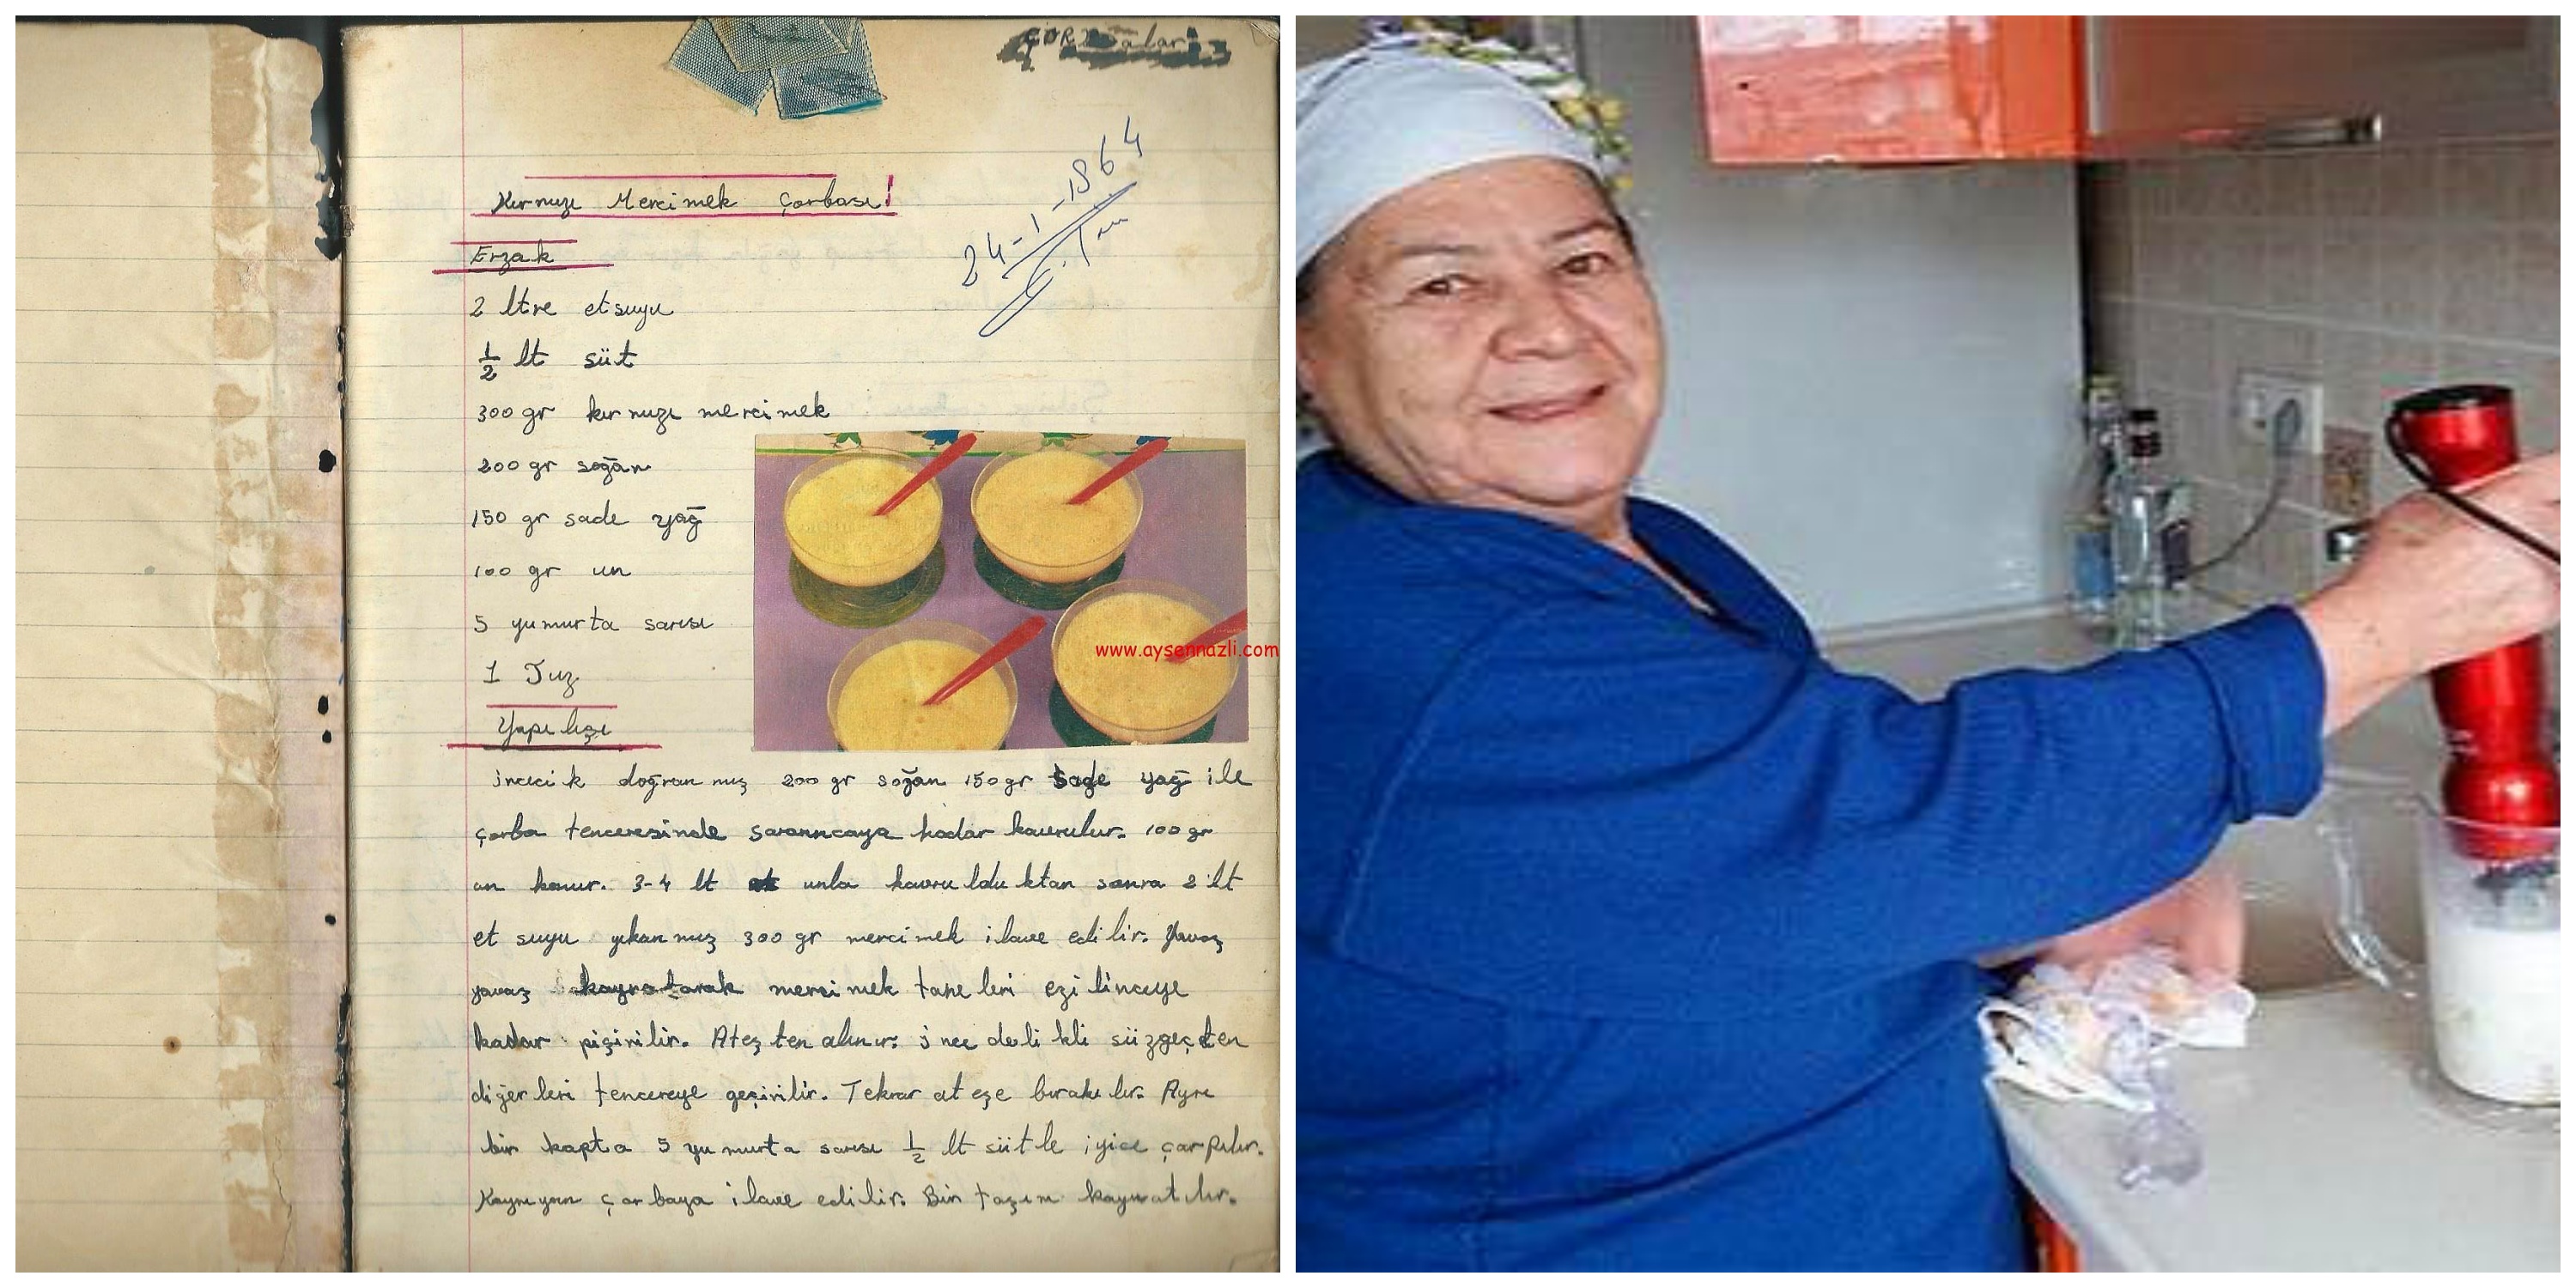 ÇORBaları
24-1-1964
Kırmızı Mercimek Çorbası!
Erzak
2 ltre etsuyu
1/2 lt süt
300 gr kırmızı mercimek
200 gr soğan
150 gr sade yağ
100 gr un
5 yumurta sarısı
1 Tuz
www.aysennazli.com
Yapılışı
incecik doğranmış 200 gr soğan 150 gr sade yağ ile
çorba tenceresinde sararıncaya kadar kavrulur. 100 gr
un konur. 3-4 lt unla kavrulduktan sonra 2 lt
et suyu yıkanmış 300 gr mercimek ilave edilir. Yavaş
yavaş kaynatarak mercimek taneleri ezilinceye
kadar pişirilir. Ateşten alınır. ince delikli süzgeçten
diğerleri tencereye geçirilir. Tekrar ateşe bırakılır. Ayrı
bir kapta 5 yumurta sarısı 1/2 lt sütle iyice çarpılır.
Kaynıyan çorbaya ilave edilir. Bir taşım kaynatılır.